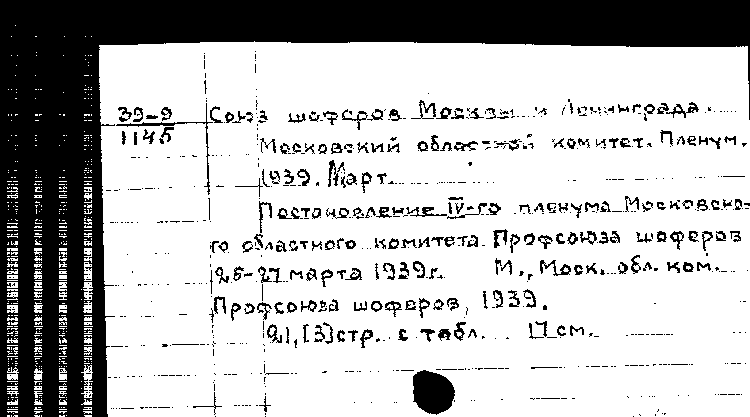 39-9 Союз шоферов Москвы и Ленинграда.
1145
Московский областной комитет. Пленум.
1939. Март.
Постановление IV-го пленума Московско-
го областного комитета Профсоюза шоферов
25-27 марта 1939г. М., Моск. обл. ком.
Профсоюза шоферов, 1939.
21,[3]стр. с табл. 17 см.